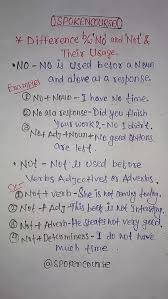 SPOKENCOURSE
* Difference b/w 'No' and 'Not' &
Their Usage.
• NO - No is used before a Noun
and alone at a response
Examples
① No + Noun - I have No time.
② No as response - Did you finish
Your work? - No I didn't.
③ No + Adj + Noun - No good options
are left.
• Not - Not is used before
Verbs Adjectives or Adverbs.
① Not + verb - She is not coming today.
② Not + Adj - This book is Not Interesting.
③ Not + Adverb - He sleeps not very good.
④ Not + Determiners - I do not have
much time.
@SPOKENCOURSE